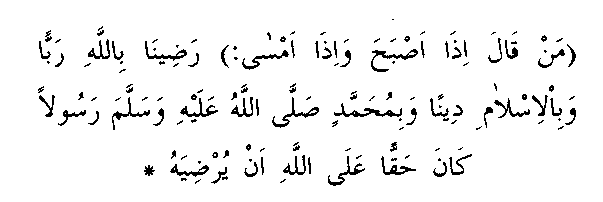 (مَنْ قَالَ اِذَا اَصْبَحَ وَاِذَا اَمْسٰى:) رَضِينَا بِاللَّهِ رَبًّا
وَبِاْلاِسْلاٰمِ دِينًا وَبِمُحَمَّدٍ صَلَّى اللَّهُ عَلَيْهِ وَسَلَّمَ رَسُولاً
كَانَ حَقًّا عَلَى اللَّهِ اَنْ يُرْضِيَهُ *